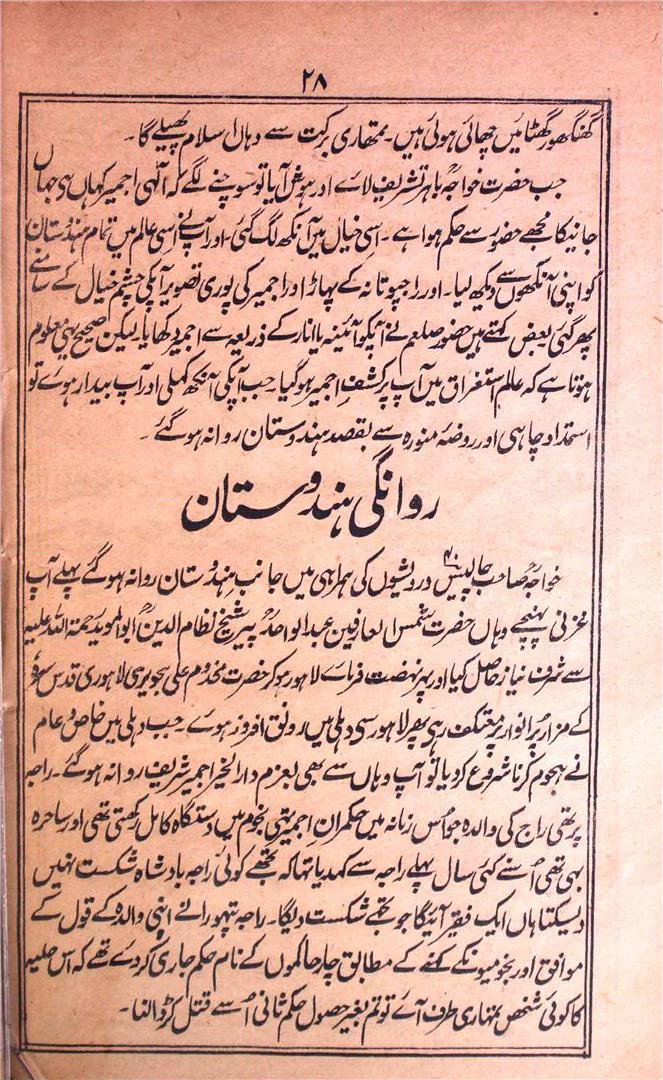 ۲۸
گھنگھور گھٹائیں چھائی ہوئی ہیں۔ تمھاری برکت سے وہاں اسلام پھیلے گا۔
جب حضرت خواجہؒ باہر تشریف لائے اور ہوش آیا تو سوچنے لگے کہ الٰہی اجمیر کہاں ہی جہاں
جانیکا مجھے حضور سے حکم ہوا ہے۔ اسی خیال میں آنکھ لگ گئی۔ اور آپ نے اسی عالم میں تمام ہندوستان
کو اپنی آنکھوں سے دیکھ لیا۔ اور راجپوتانہ کے پہاڑ اور اجمیر کی پوری تصویر آپکی چشم خیال کے سامنے
پھر گئی بعض کہتے ہیں حضور صلعم نے آپکو آئینہ یا انار کے ذریعہ سے اجمیر دکھایا۔ لیکن صحیح یہی معلوم
ہوتا ہے کہ عالم استغراق میں آپ پر کشفِ اجمیر ہوگیا۔ جب آپکی آنکھ کھلی اور آپ بیدار ہوے تو
استمداد چاہی اور روضۂ منورہ سے بقصد ہندوستان روانہ ہو گئے۔
روانگی ہندوستان
خواجہؒ صاحب چالیس ۴۰ درویشوں کی ہمراہی میں جانب ہندوستان روانہ ہو گئے پہلے آپ
غزنی پہنچے وہاں حضرت شمس العارفین عبدالواحدؒ پیر شیخ نظام الدین ابوالمویدؒ رحمۃ اللہ علیہ
سے شرف نیاز حاصل کیا اور پھر نہضت فرمائے لاہور ہو کر حضرت مخدوم علی ہجویری لاہوری قدس سرہٗ
کے مزار پُر انوار پر معتکف رہی پھر لاہور سی دہلی میں رونق افروز ہوے۔ جب دہلی میں خاص و عام
نے ہجوم کرنا شروع کردیا تو آپ وہاں سے بھی بعزم دارالخیر اجمیر شریف روانہ ہو گئے۔ راجہ
پرتھی راج کی والدہ جو اُس زمانہ میں حکمرانِ اجمیر تہی نجوم میں دستگاہ کامل رکھتی تھی اور ساحرہ
بہی تھی اُسنے کئی سال پہلے راجہ سے کہدیا تہا کہ تجھے کوئی راجہ بادشاہ شکست نہیں
دیسکتا ہاں ایک فقیر آئیگا جو تجھے شکست دیگا۔ راجہ پتہورا نے اپنی والدہ کے قول کے
موافق اور نجومیونکے کہنے کے مطابق چار حاکموں کے نام حکم جاری کردئے تھے کہ اس حلیہ
کا کوئی شخص تمہاری طرف آئے تو تم بغیر حصول حکم ثانی اُسے قتل کر ڈالنا۔